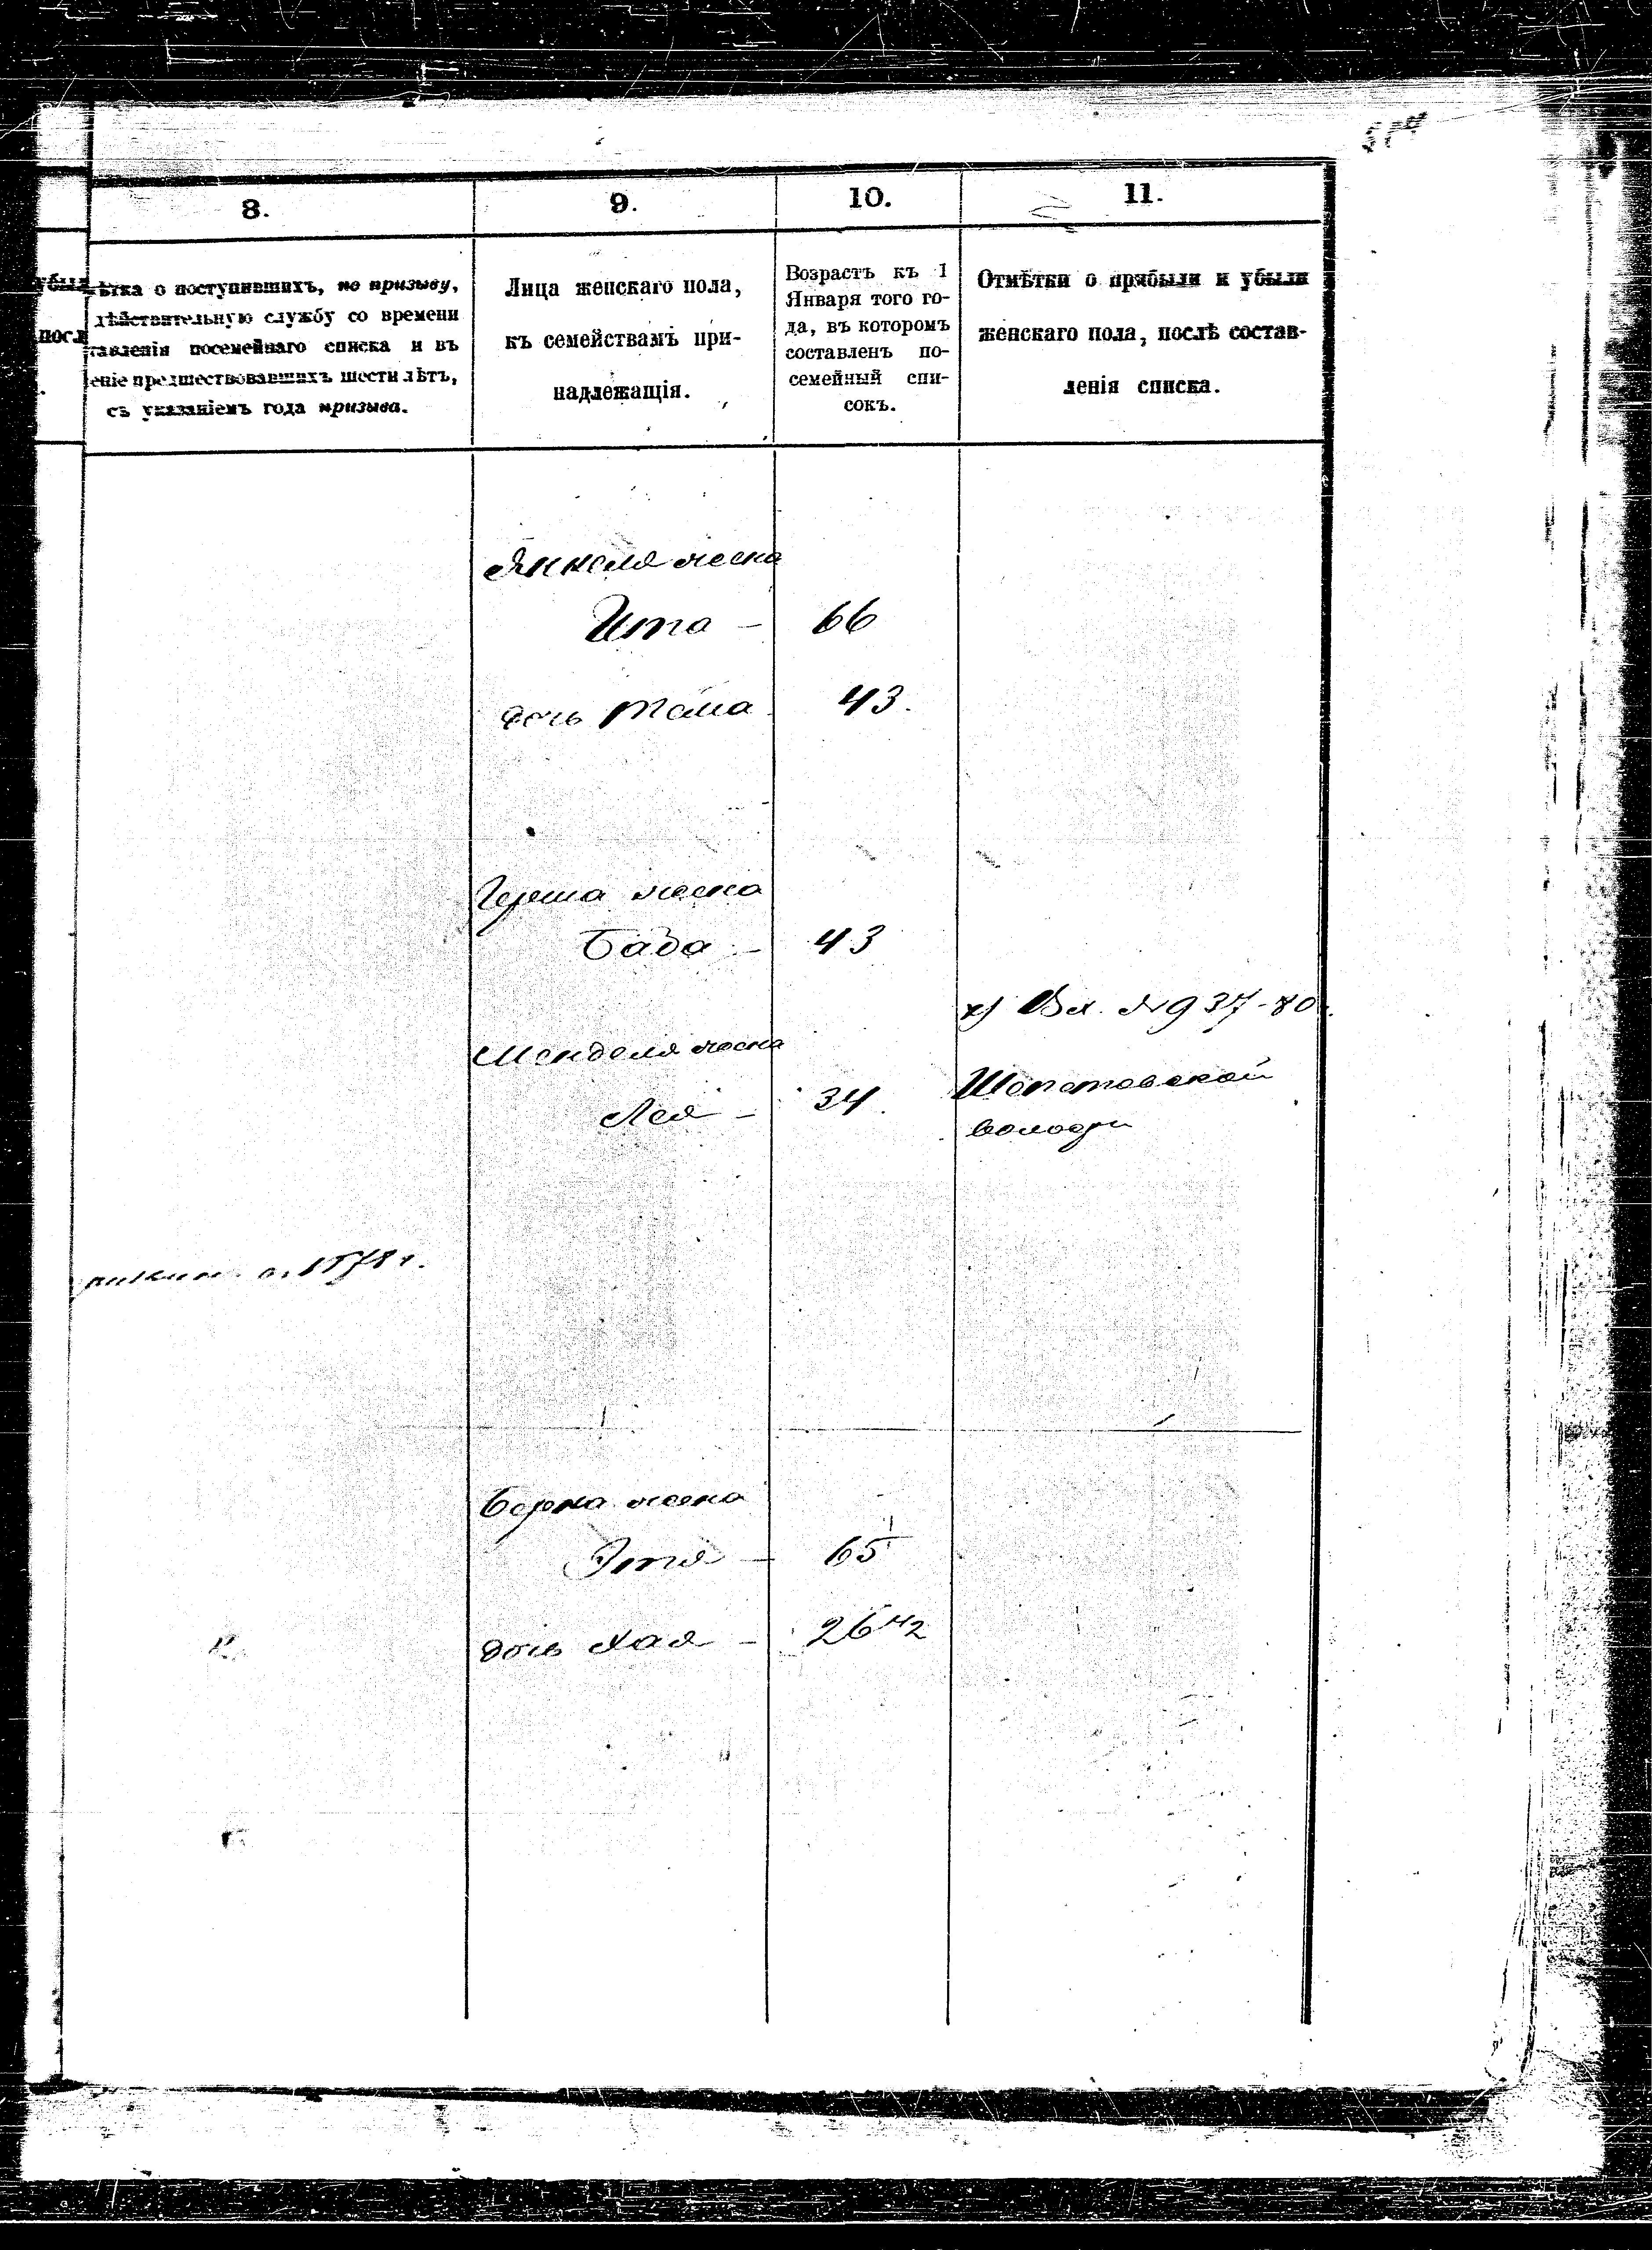 8.
9.
10.
11.
о поступившихъ, по призыву,
дѣйствительную службу со времени
посемейнаго списка и въ
предшествовавшихъ шести лѣтъ,
съ указаніемъ года призыва.
Лица женскаго пола,
къ семействамъ при-
надлежащія.
Возрастъ къ 1
Января того го-
да, въ которомъ
составленъ по-
семейный спи-
сокъ.
Отмѣтки о прибыли и убыли
женскаго пола, послѣ состав-
ленія списка.
Янкеля жена
Ита — 66
дочь 43.
Герша жена
— 43
Вх. № 937-80
Менделя жена
Лея — 34
Шепетовской
волости
1878 г.
Берка жена
Этя — 65
дочь Хая — 26 1/2